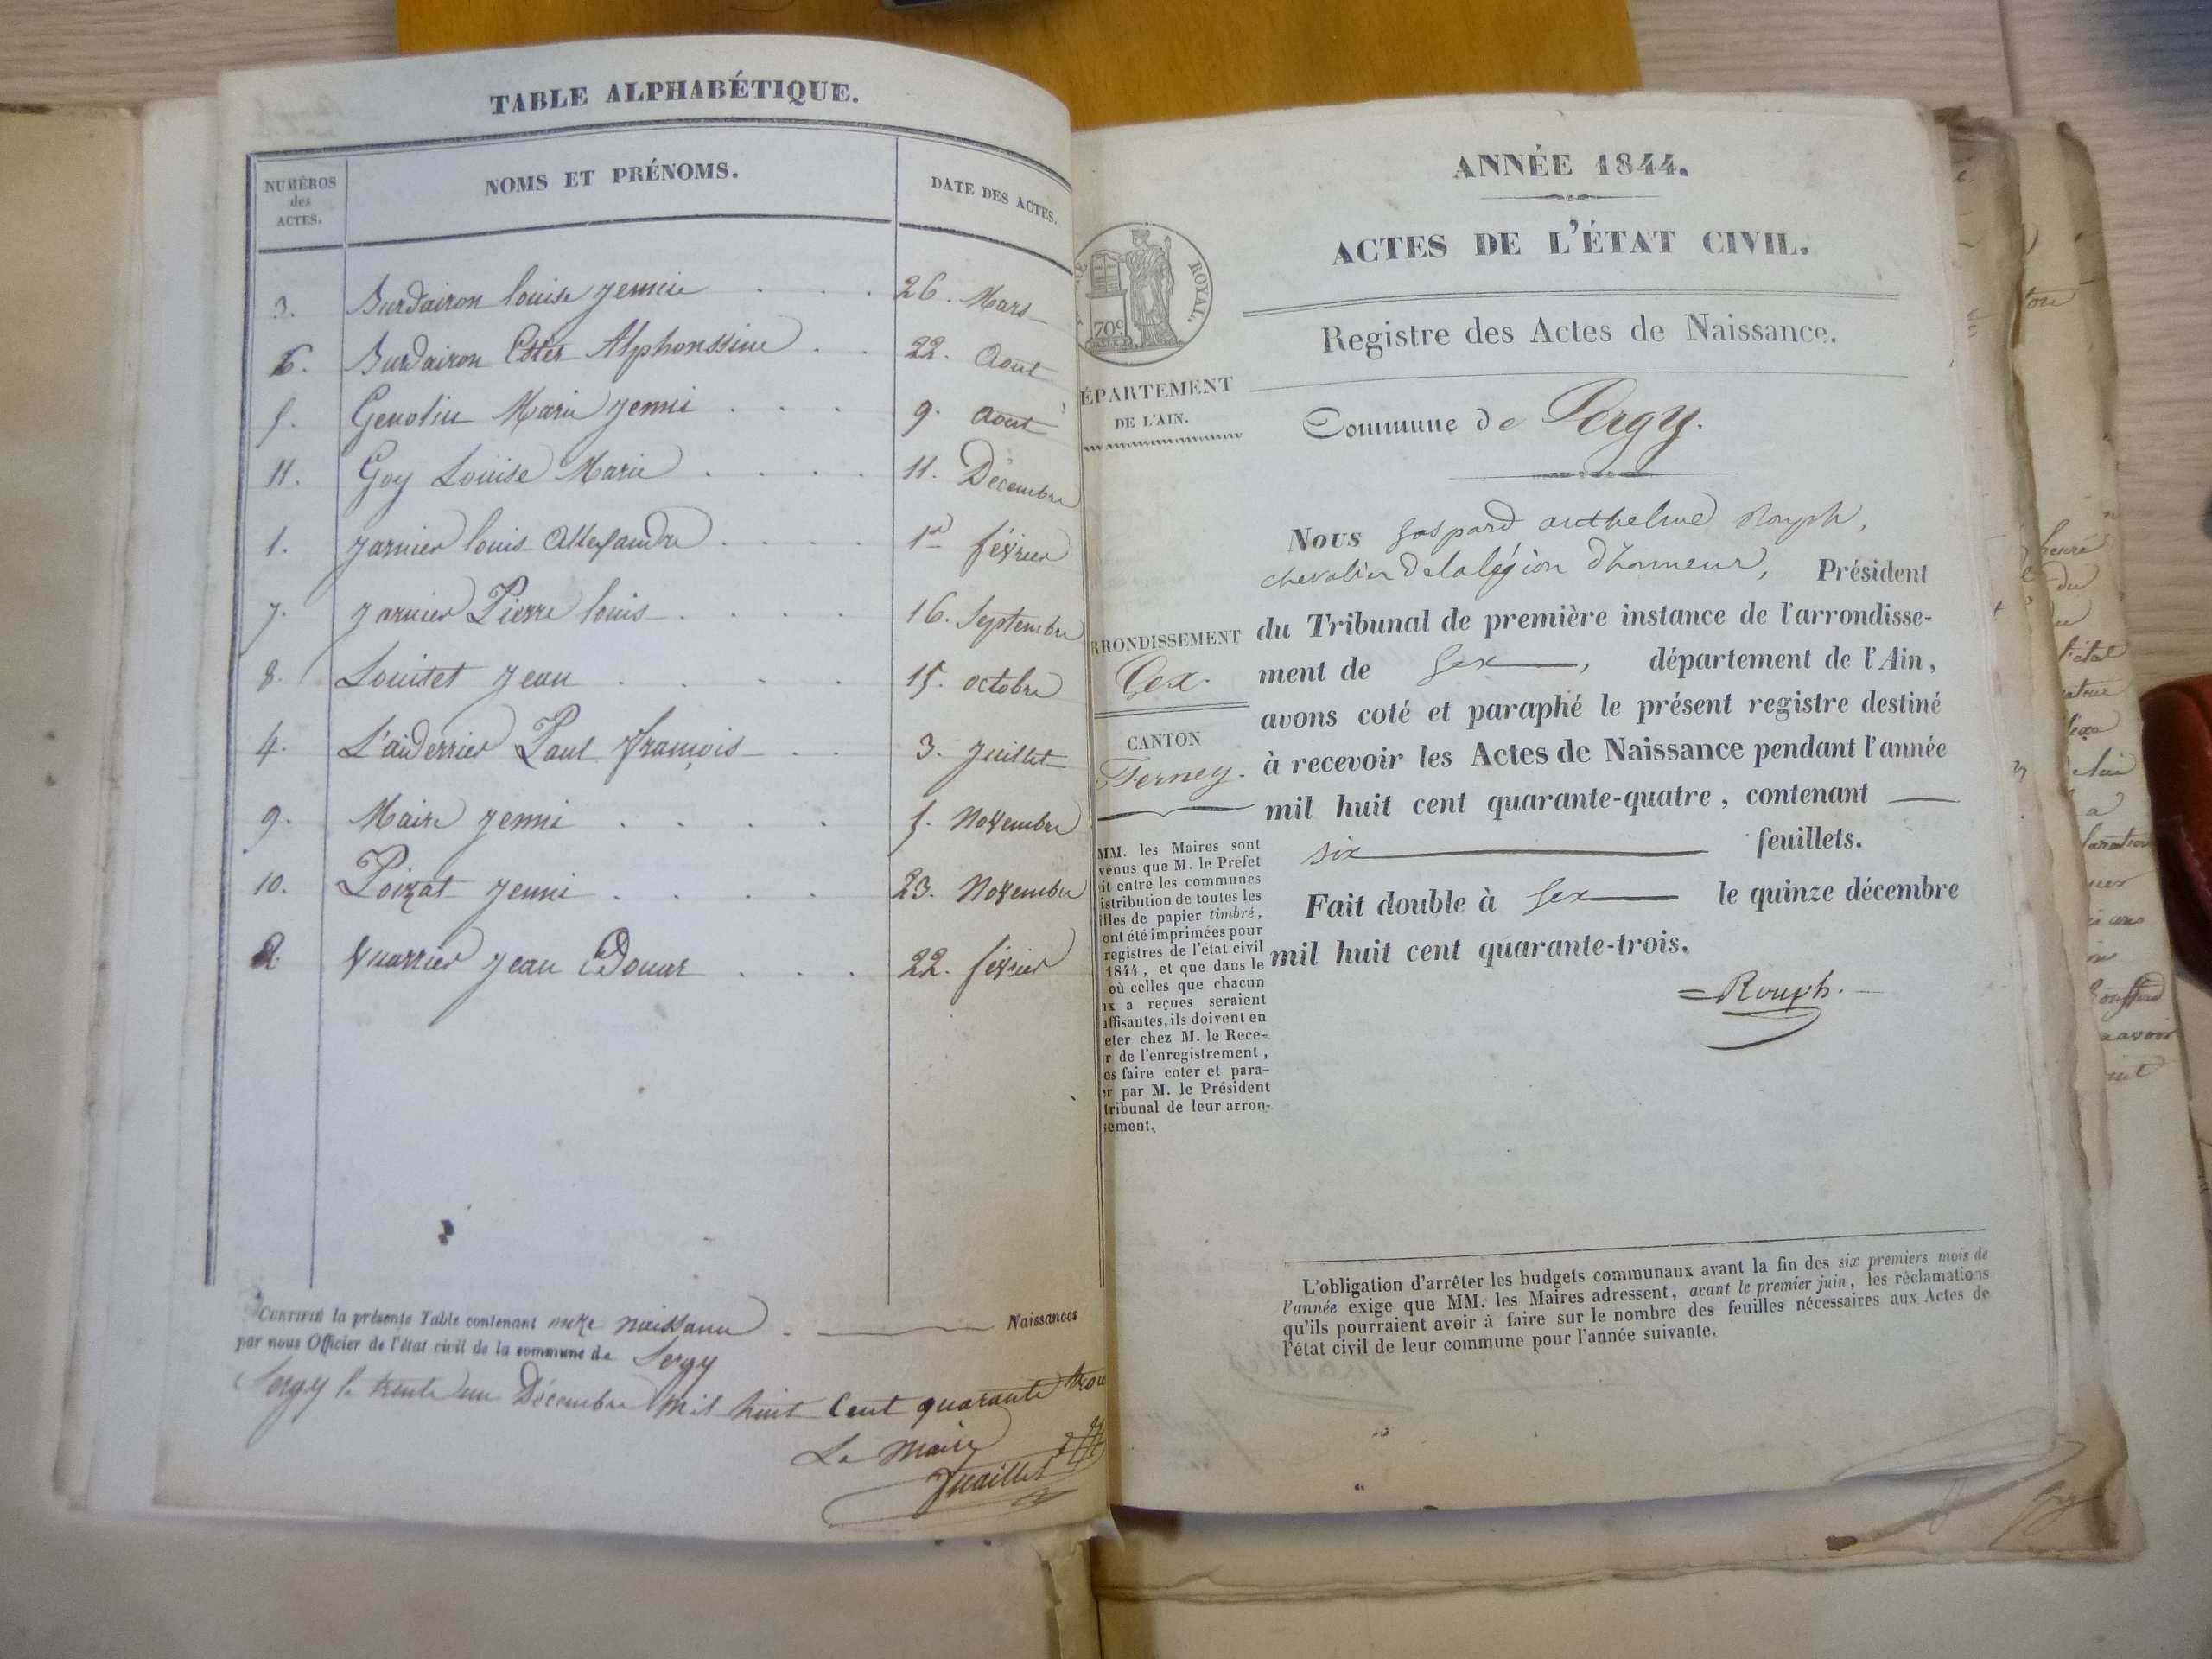 TABLE ALPHABÉTIQUE.
NUMÉROS des ACTES. NOMS ET PRÉNOMS. DATE DES ACTES.
3. Burdairon louise Jennie 26. Mars
6. Burdairon Ester Alphonssine 22. Aout
5. Genolin Marie Jenni 9. Aout
11. Goy Louise Marie 11. Décembre
1. Jarnier louis Allexandre 1er février
7. Jarnier Pierre louis 16. Septembre
8. Louitet Jean 15. octobre
4. L'aiderrier Paul françois 3. Juillet
9. Maire Jenni 5. Novembre
10. Poizat Jenni 23. Novembre
2. Jean Edouar 22. février
CERTIFIÉ la présente Table contenant onze naissance Naissances
par nous Officier de l'état civil de la commune de Sergy
Sergy le trente un Décembre mil huit Cent quarante trois
Le Maire
ANNÉE 1844.
ACTES DE L'ÉTAT CIVIL.
Registre des Actes de Naissance.
ROYAL.
70c
ÉPARTEMENT
DE L'AIN.
Commune de Sergy.
Nous Gaspard anthelme Rouph,
chevalier de la légion d'honneur, Président
du Tribunal de première instance de l'arrondisse-
ment de Gex, département de l'Ain,
avons coté et paraphé le présent registre destiné
à recevoir les Actes de Naissance pendant l'année
mil huit cent quarante-quatre, contenant
six feuillets.
Fait double à Gex le quinze décembre
mil huit cent quarante-trois.
Rouph.
RRONDISSEMENT
Gex.
CANTON
Ferney.
MM. les Maires sont
venus que M. le Préfet
it entre les communes
istribution de toutes les
illes de papier timbré,
ont été imprimées pour
registres de l'état civil
1844, et que dans le
où celles que chacun
ux a reçues seraient
uffisantes, ils doivent en
eter chez M. le Rece-
r de l'enregistrement,
es faire coter et para-
er par M. le Président
tribunal de leur arron-
sement.
L'obligation d'arrêter les budgets communaux avant la fin des six premiers mois de
l'année exige que MM. les Maires adressent, avant le premier juin, les réclamations
qu'ils pourraient avoir à faire sur le nombre des feuilles nécessaires aux Actes de
l'état civil de leur commune pour l'année suivante.